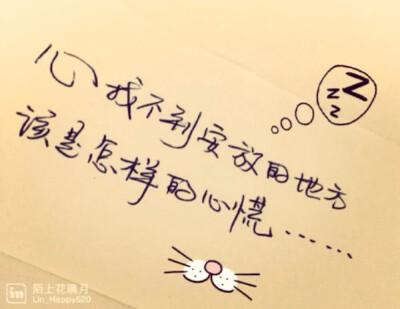 心找不到安放的地方
该是怎样的心慌……
zzz
in
陌上花暁月
Lin_Happy520